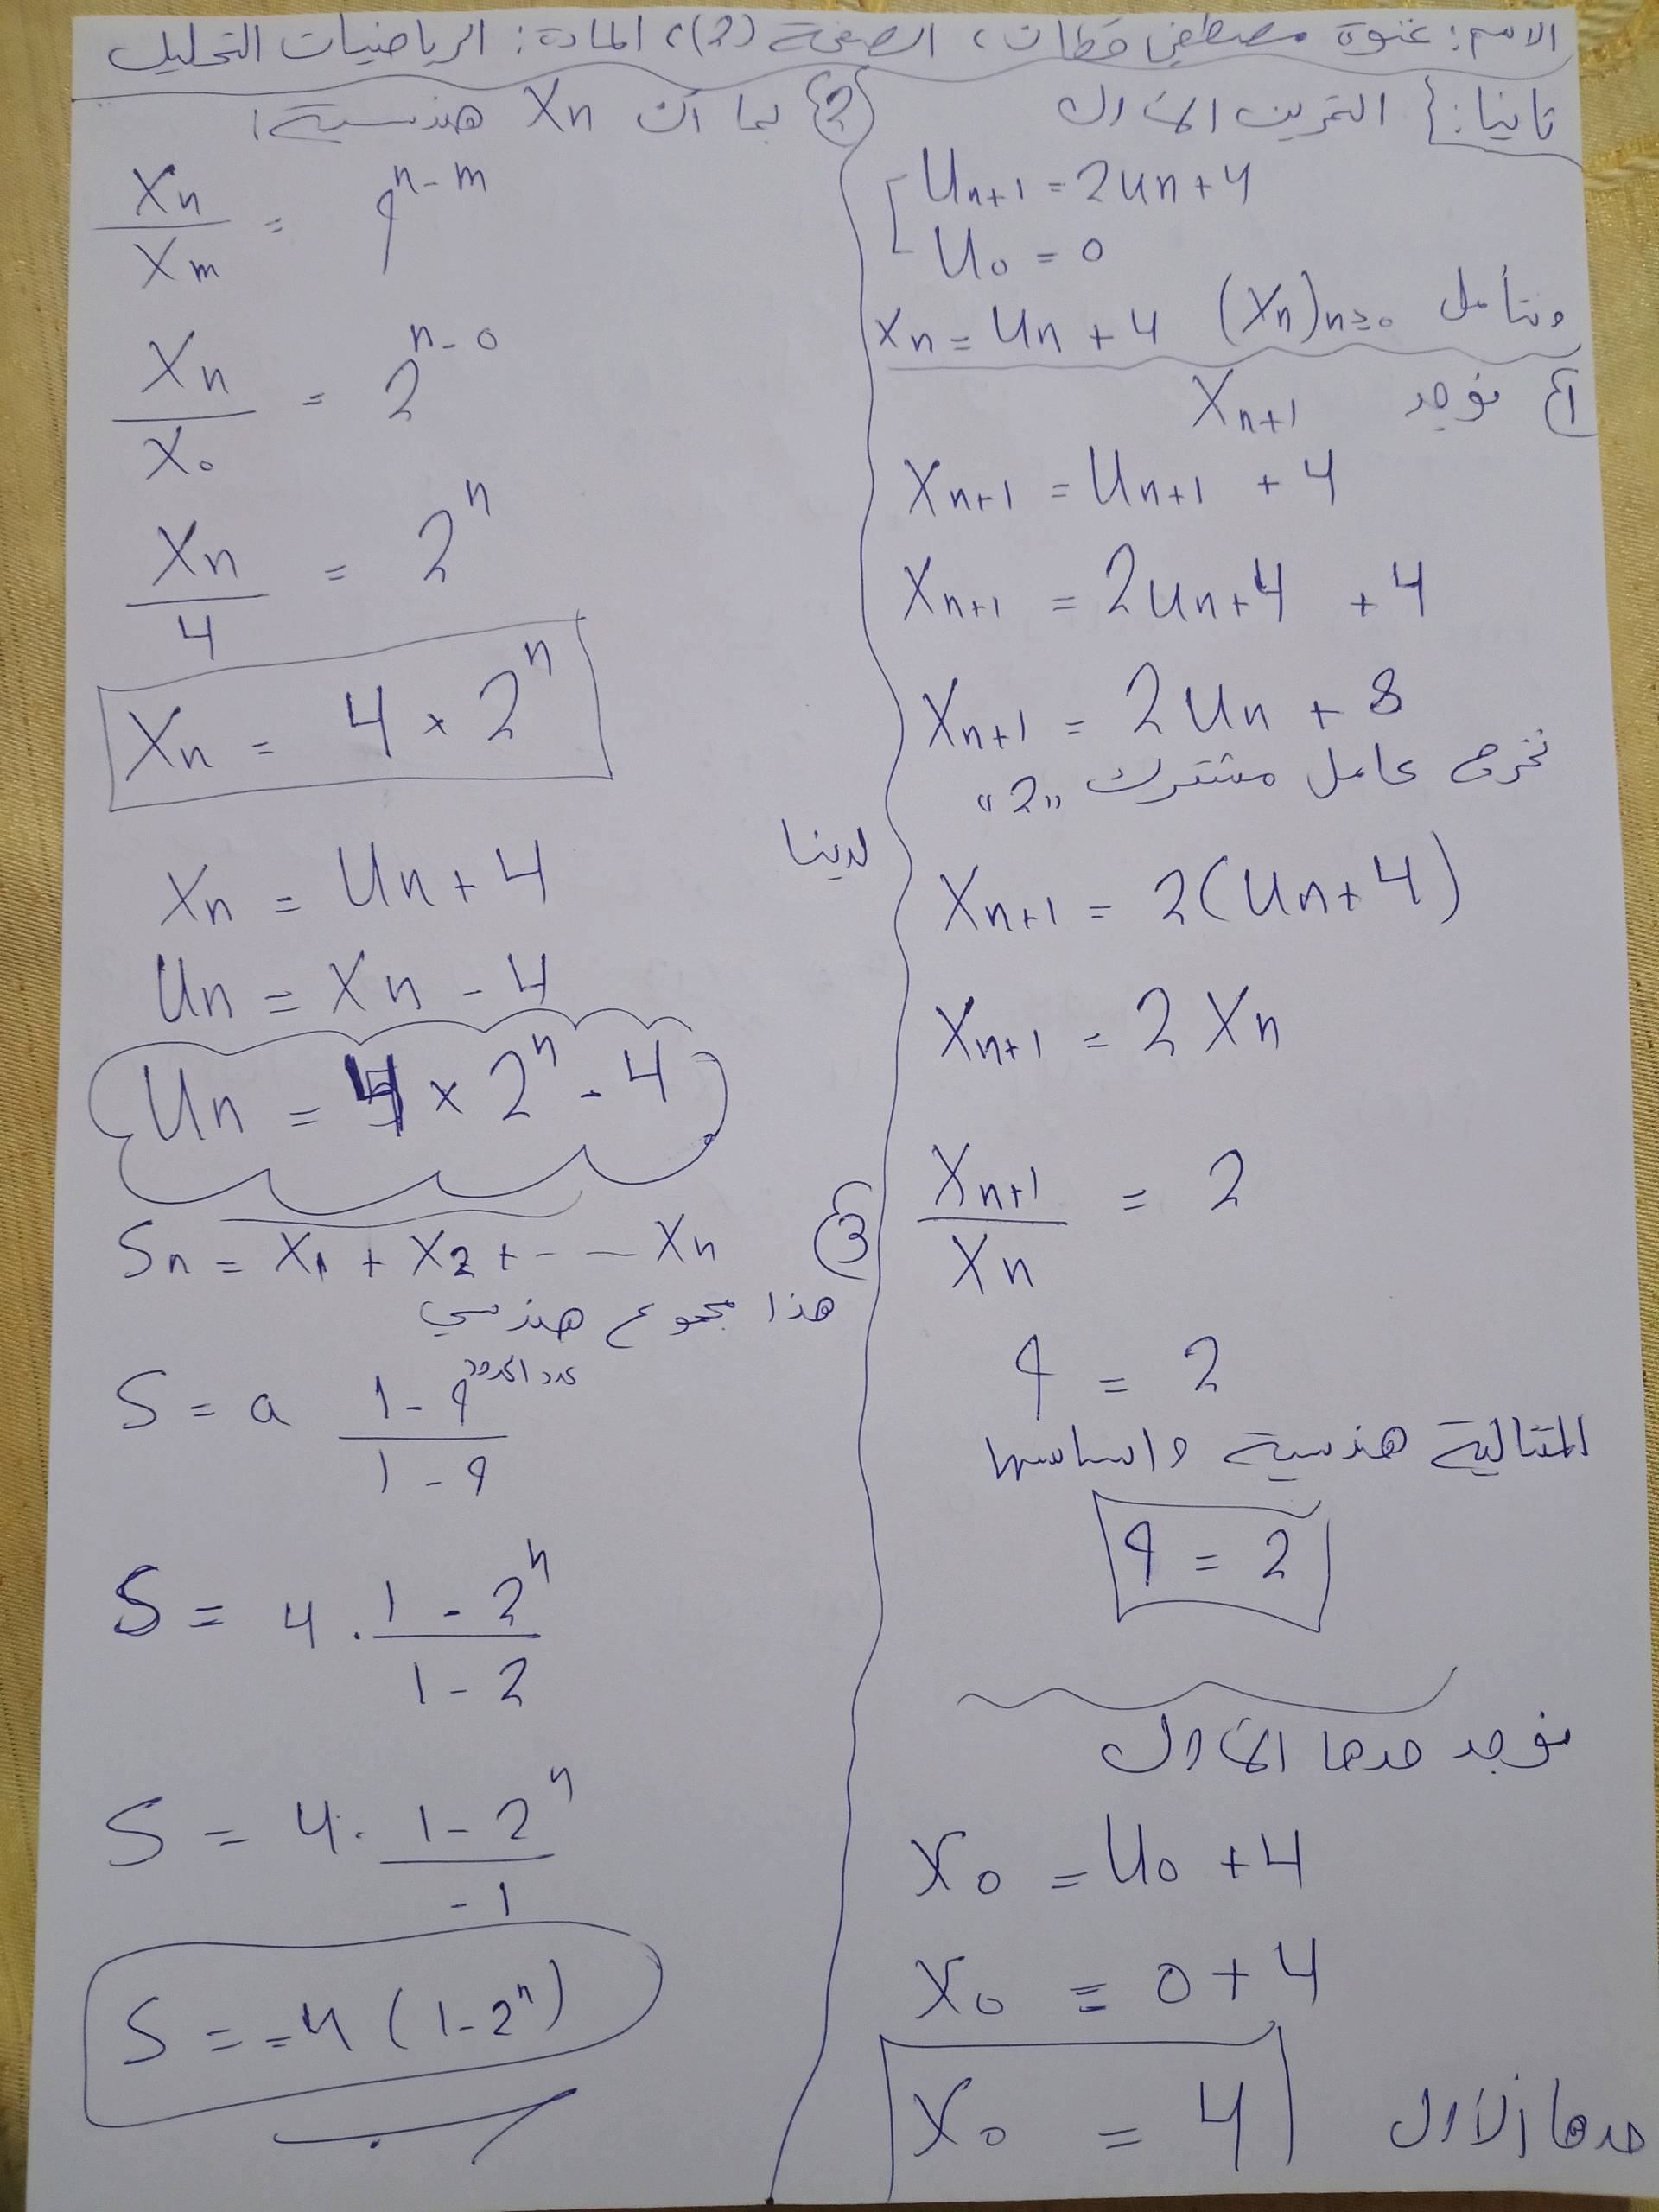 الاسم: غنوة مصطفى قطان، الصفحة (2)، المادة: الرياضيات التحليل
ثانيا: التمرين الأول
U_{n+1} = 2U_n + 4
U_0 = 0
ونتأمل (X_n)_{n≥0} X_n = U_n + 4
1) نوجد X_{n+1}
X_{n+1} = U_{n+1} + 4
X_{n+1} = 2U_n + 4 + 4
X_{n+1} = 2U_n + 8
نخرج عامل مشترك "2"
X_{n+1} = 2(U_n + 4)
X_{n+1} = 2X_n
X_{n+1}/X_n = 2
q = 2
المتتالية هندسية واساسها
q = 2
نوجد حدها الأول
X_0 = U_0 + 4
X_0 = 0 + 4
X_0 = 4 حدها الأول
2) بما أن X_n هندسية:
X_n/X_m = q^{n-m}
X_n/X_0 = 2^{n-0}
X_n/4 = 2^n
X_n = 4 × 2^n
لدينا X_n = U_n + 4
U_n = X_n - 4
U_n = 4 × 2^n - 4
3) S_n = X_1 + X_2 + --- X_n
هذا مجموع هندسي
S = a (1 - q^{عدد الحدود})/(1 - q)
S = 4 . (1 - 2^n)/(1 - 2)
S = 4 . (1 - 2^n)/(-1)
S = -4 (1 - 2^n)